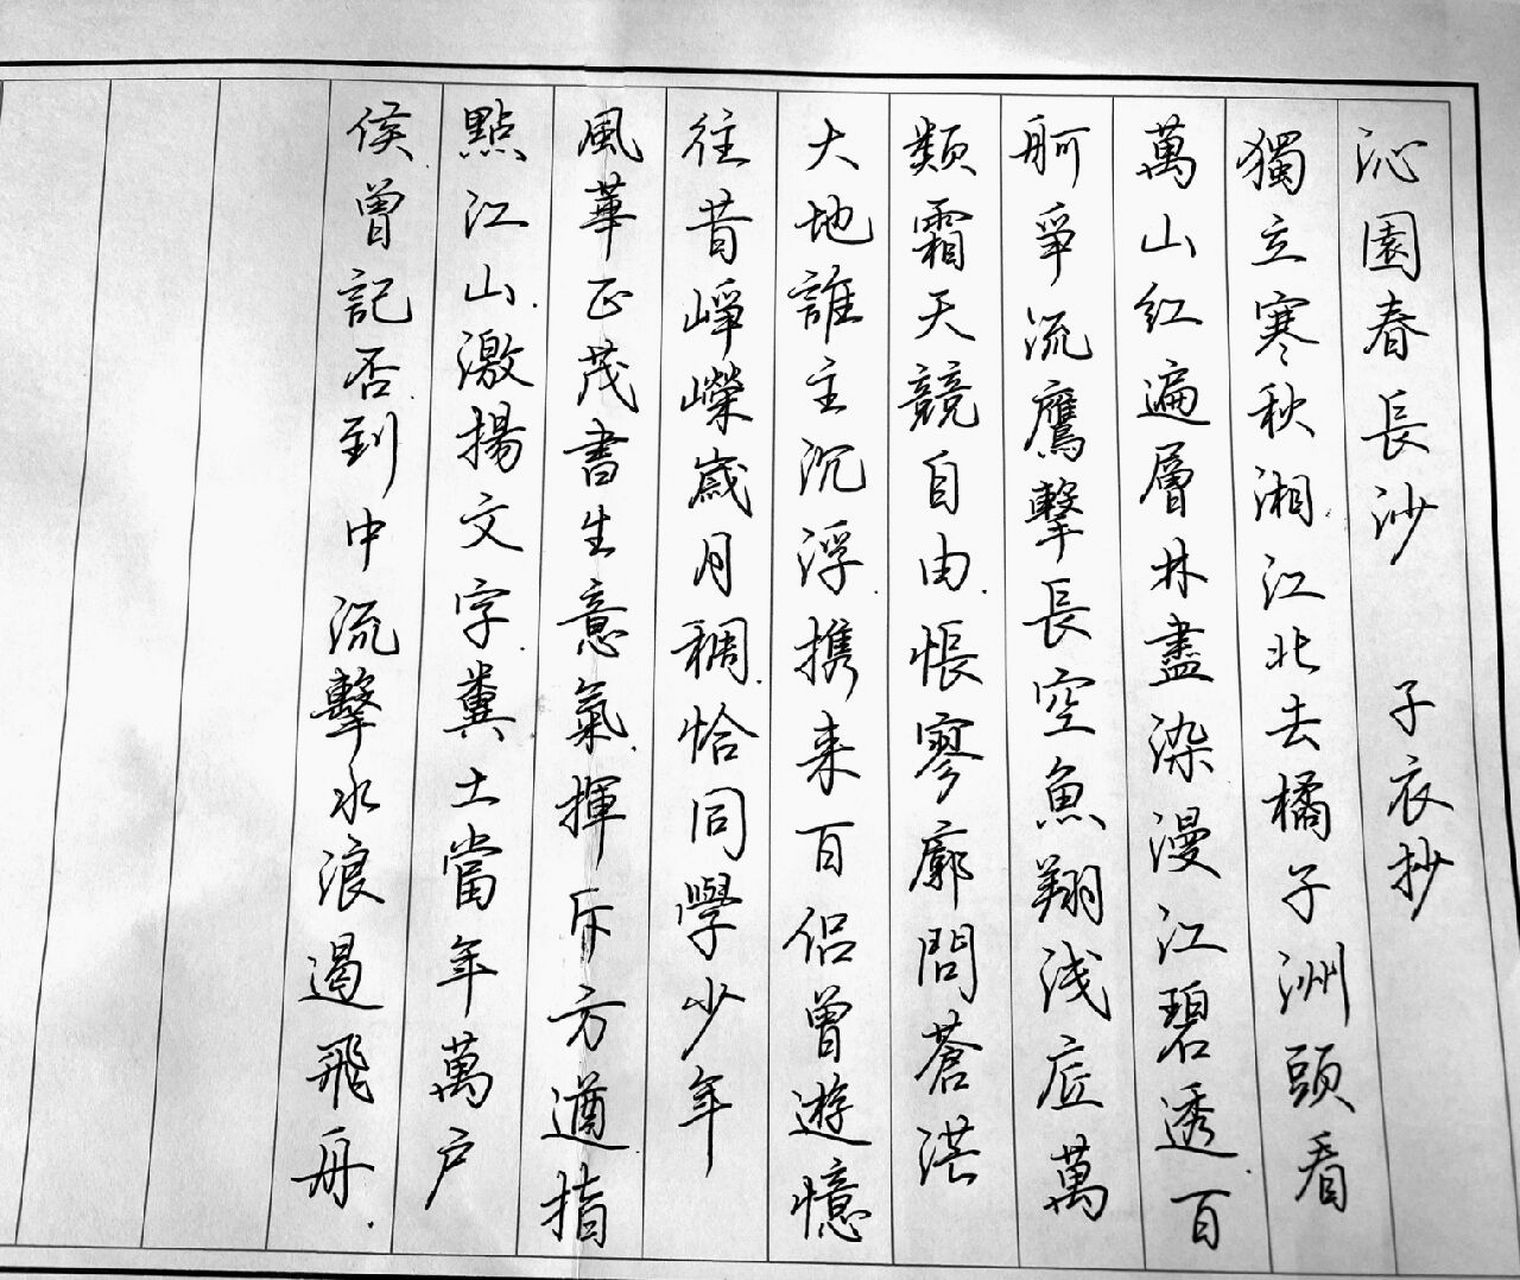 沁園春長沙 子衣抄
獨立寒秋湘江北去橘子洲頭看
萬山紅遍層林盡染漫江碧透百
舸爭流鷹擊長空魚翔浅底萬
類霜天競自由悵寥廓問蒼茫
大地誰主沉浮攜来百侣曾遊憶
往昔崢嶸歲月稠恰同學少年
風華正茂書生意氣揮斥方遒指
點江山激揚文字糞土當年萬户
侯曾記否到中流擊水浪遏飛舟